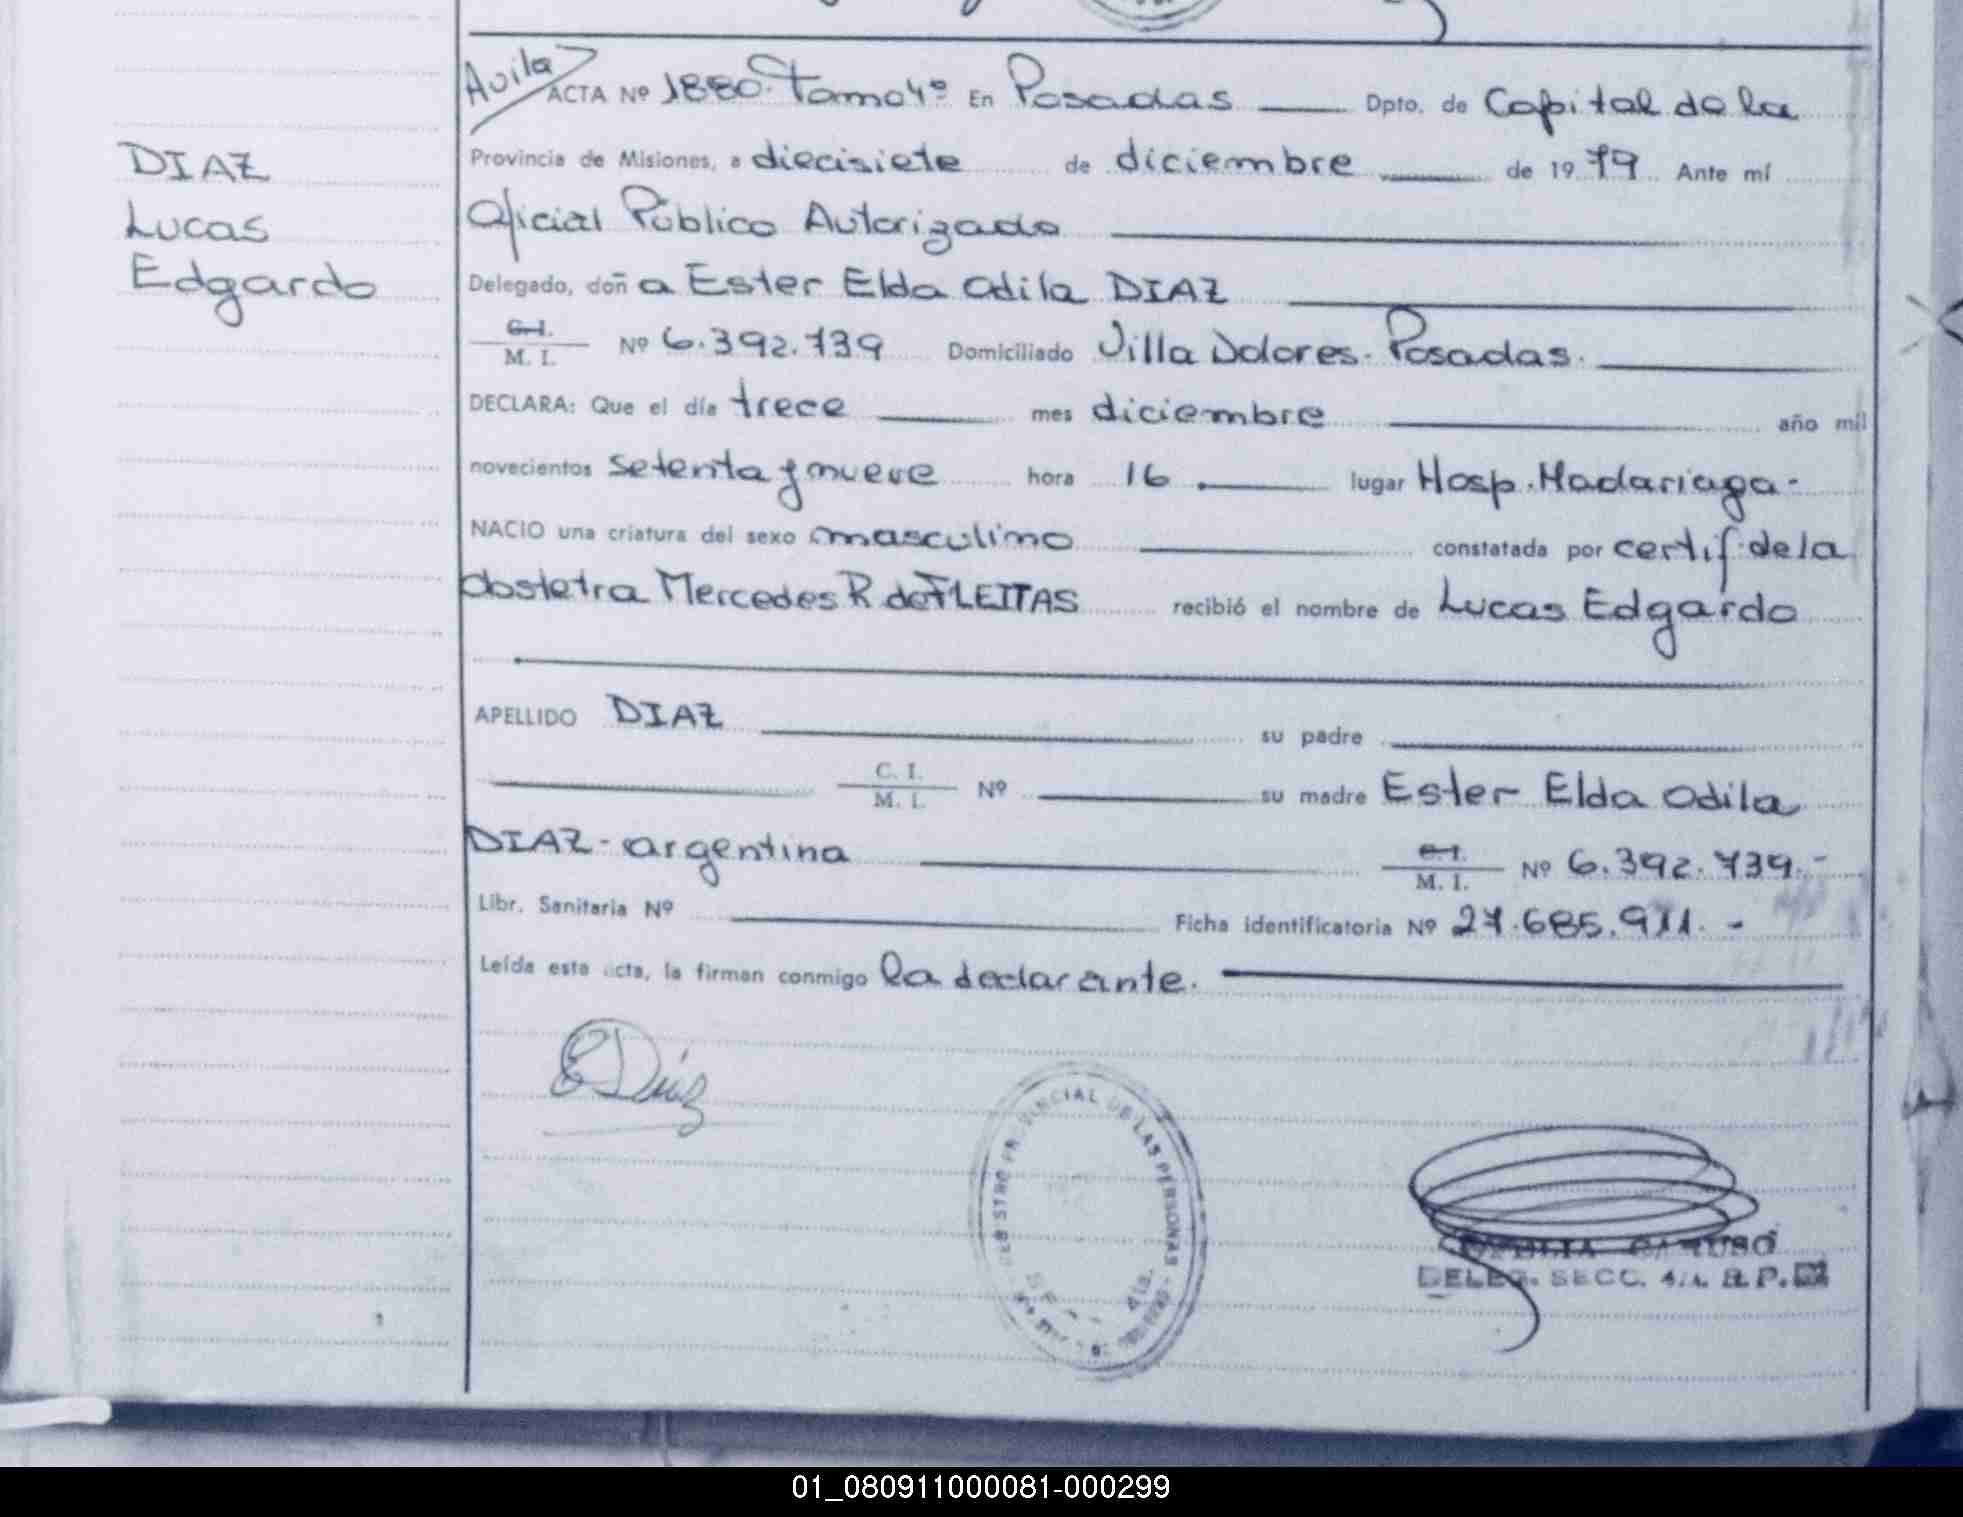 Avila
ACTA Nº 1880. Tomo 4º En Posadas Dpto. de Capital de la
Provincia de Misiones, a diecisiete de diciembre de 1979 Ante mí
Oficial Público Autorizado
DIAZ
Lucas
Edgardo
Delegado, doña Ester Elda Odila DIAZ
C.I.
M. I. Nº 6.392.739 Domiciliado Villa Dolores. Posadas.
DECLARA: Que el día trece mes diciembre año mil
novecientos setenta y nueve hora 16 lugar Hosp. Madariaga-
NACIO una criatura del sexo masculino constatada por certif. de la
obstetra Mercedes R. de FLEITAS recibió el nombre de Lucas Edgardo
APELLIDO DIAZ su padre
C. I.
M. I. Nº su madre Ester Elda Odila
DIAZ - argentina C.I.
M. I. Nº 6.392.739.-
Libr. Sanitaria Nº Ficha identificatoria Nº 27.685.911.-
Leída esta acta, la firman conmigo la declarante.
EDiaz
PROVINCIAL DE LAS PERSONAS
CARUSO
DELEG. SECC. 4/A. R. P.
01_080911000081-000299